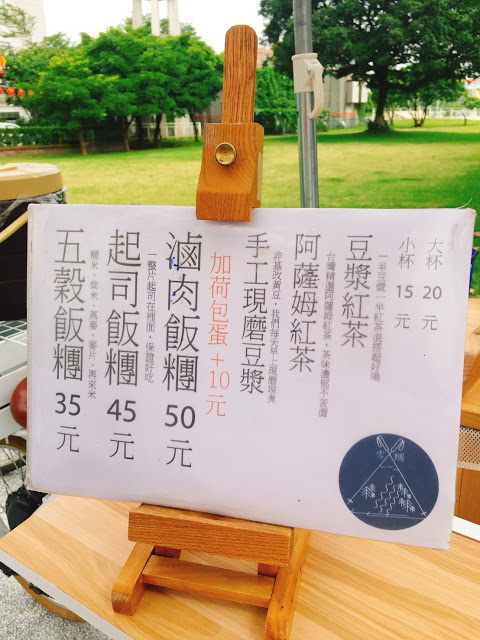 大杯 20 元
小杯 15 元
豆漿紅茶
一半豆漿一半紅茶混搭超好喝
阿薩姆紅茶
台灣精選阿薩姆紅茶,茶味濃郁不苦澀
手工現磨豆漿
非基改黃豆,我們每天早上現磨現煮
加荷包蛋 +10 元
滷肉飯糰 50 元
起司飯糰 45 元
一整片起司在裡面,保證好吃
五穀飯糰 35 元
糯米、紫米、燕麥、麥片、再來米